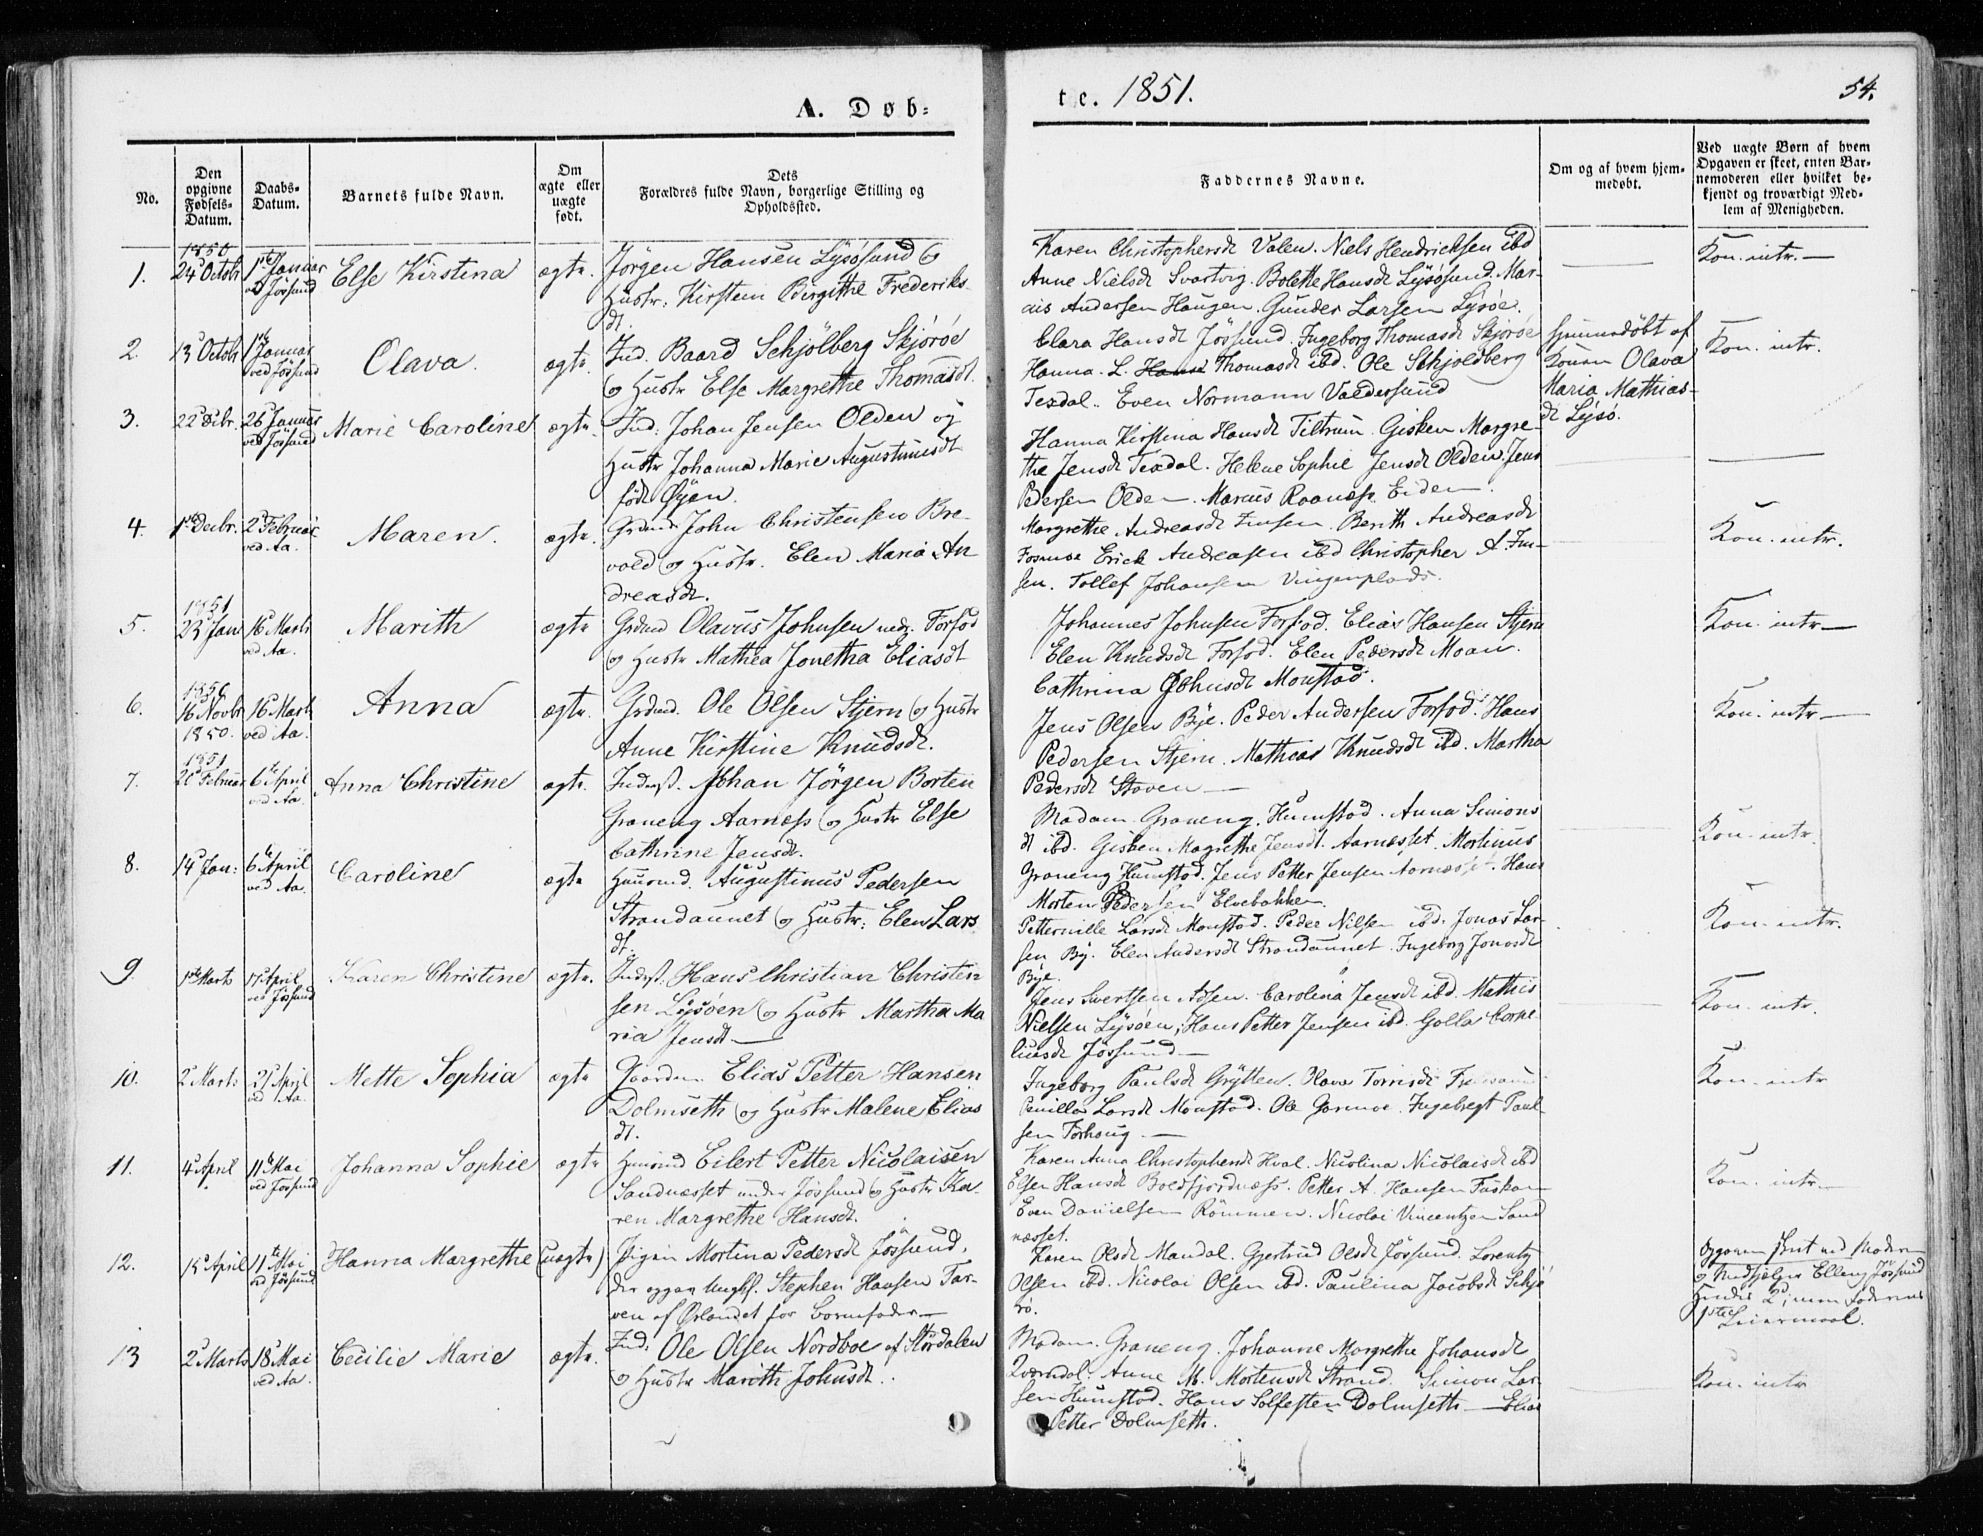 A. Døb=
te. 1851.
54.
No.
Den opgivne Fødsels-Datum.
Daabs-Datum.
Barnets fulde Navn.
Om ægte eller uægte født.
Dets Forældres fulde Navn, borgerlige Stilling og Opholdssted.
Faddernes Navne.
Om og af hvem hjemmedøbt.
Ved uægte Børn af hvem Opgaven er skeet, enten Barnemoderen eller hvilket bekjendt og troværdigt Medlem af Menigheden.
1.
1850
24d Octobr
1ste Januar
ved Jössund
Else Kirstina
ægte.
Jörgen Hansen Lysösund og
Hustr: Kirsten Birgitthe Frederiks-
dt.
Karen Christophersdt Valen. Niels Hendricksen ibd
Anne Nielsdt Svartvig. Bolette Hansdt Lysösund. Mar-
Andersen Haugen. Gunder Larsen Lysöe.
Kon. intr.
2.
13d Octobr
1ste Januar
ved Jössund
Olava.
ægte.
Ind. Baard Schjölberg Skjöröe
og Hustr Else Margrethe Thomasdt.
Clara Hansdt Jössund. Ingeborg Thomasdt Skjöröe
Hanna. L. Thomasdt ibd. Ole Schjoldberg
Texdal. Even Normann Valdersund
hjemmedöbt af
Konen Olava
Maria Mathias-
dt Lysö.
Kon. intr.
3.
22d Decbr.
26d Januar
ved Jössund
Marie Caroline
ægte.
Ind: Johan Jensen Olden og
Hustr Johanna Marie Augustinusdt
födt Öyen.
Hanna Kirstina Hansdt Tiltrum. Gisken Margre-
the Jensdt Texdal. Helene Sophie Jensdt Olden. Jens
Pedersen Olden. Marcus Raanæss Eiden.
4.
1ste Decbr.
2d Februar
ved Aa.
Maren.
ægte.
Grdmd John Christensen Bre-
vold og Hustr. Elen Maria An-
dreasdt.
Margrethe Andreasdt Jensen. Berith Andreasdt
Fosmoe Erick Andreasen ibd Christopher A. Jen-
sen. Tollef Johansen Vingenplads.
Kon. intr.
5.
1851
23d Jan
16 Marts
ved Aa.
Marith
ægte
Grdmd Olavus Johnsen nedr. Forfod
og Hustr Mathea Jonetha Eliasdt
Johannes Johnsen Forfod. Elias Hansen Stjern
Elen Knudsdt Forfod. Elen Pedersdt Moan.
Cathrina Johnsdt Monstad.
Kon. intr
6.
1850
16 Novbr
1850.
16 Marts
ved Aa.
Anna
ægte.
Grdmd. Ole Olsen Stjern og Hustr
Anne Kirstine Knudsdt.
Jens Olsen Bye. Peder Andersen Forfod. Hans
Pedersen Stjern. Mathias Knudsdt ibd. Martha
Pedersdt Stoven
Kon. intr
7.
1851
20d Februar
6te April
ved Aa.
Anna Christine
ægte.
Inderst. Johan Jörgen Borten
Graneng Aarnæss og Hustr Else
Cathrine Jensdt.
Madam Graneng. Humstad. Anna Simons
dt ibd. Gisken Magrethe Jensdt. Aarnæsset. Mortinus
Graneng Humstad. Jens Petter Jensen Aarnæsset. Hans
Morten Pedersen Elvebakken.
Kon. intr.
8.
14d Jan:
6te April
ved Aa.
Caroline
ægte
Huusmd. Augustinus Pedersen
Strandaunet og Hustr: Elen Lars
dt.
Petternille Larsdt Monstad. Peder Nilsen ibd. Jonas Lar-
sen By. Elen Andersdt Strandaunet. Ingeborg Jonasdt
Bye
Kon. intr.
9.
1ste Marts
17 April
ved Jössund
Karen Christine
ægte.
Inderst: Hans Christian Christen
sen Lysöen og Hustr Martha Ma
ria Jensdt
Jens Svertsen Aasen. Carolina Jensdt ibd. Mathis
Nielsen Lysöen, Hans Petter Jensen ibd. Golla Corne-
liusdt Jössund
Kon. intr.
10.
2d Marts
21 April
ved Aa.
Mette Sophia
ægte
Gaardm. Elias Petter Hansen
Dolmseth og Hustr Malene Elias
dt.
Ingeborg Paulsdt Grytten. Olava
Larsdt Monstad. Ole Garmoe. Ingebregt Paul-
sen Forhoug
Kon. intr
11.
4d April
11te Mai
ved Jössund
Johanna Sophie
ægte
Huusmd Eilert Petter Nicolaisen
Sandnæsset under Jössund og Hustr Ka-
ren Margrethe Hansdt.
Karen Anna Christophersdt Hval. Nicolina Nicolaisdt ibd
Elsen Hansdt Boldfjordnæss. Petter A. Hansen Fuskan-
Even Danielsen Römmen. Nicolai Vincentzen Sand
næsset.
Kon. intr.
12.
15 April
11te Mai
ved Jössund
Hanna Margrethe
(uægte)
Pigen Mortina Pedersdt Jössund,
der opgav Ungkl. Stephen Hansen Tar-
ven af Örlandet for Barnefader
Karen Olsdt Mandal. Gjertrud Olsdt Jössund. Lorentz
Olsen ibd. Nicolai Olsen ibd. Paulina Jacobsdt Skjö
rö.
Opgaven skeet ved Moderen
og Medhjelper Elleng Jössund
Hendes 2d, men Faderens
1ste Leiermaal.
13
2d Marts
18d Mai
ved Aa.
Cecilie Marie
ægte.
Ind. Ole Olsen Nordboe af Stördalen
og Hustr Marith Johnsdt.
Madam Graneng. Johanne Margrethe Johansdt
Qværndal. Anne M. Mortensdt Strand. Simon Lar-
sen Humstad. Hans Solfesten Dolmseth. Elias
Petter Dolmseth.
Kon. intr